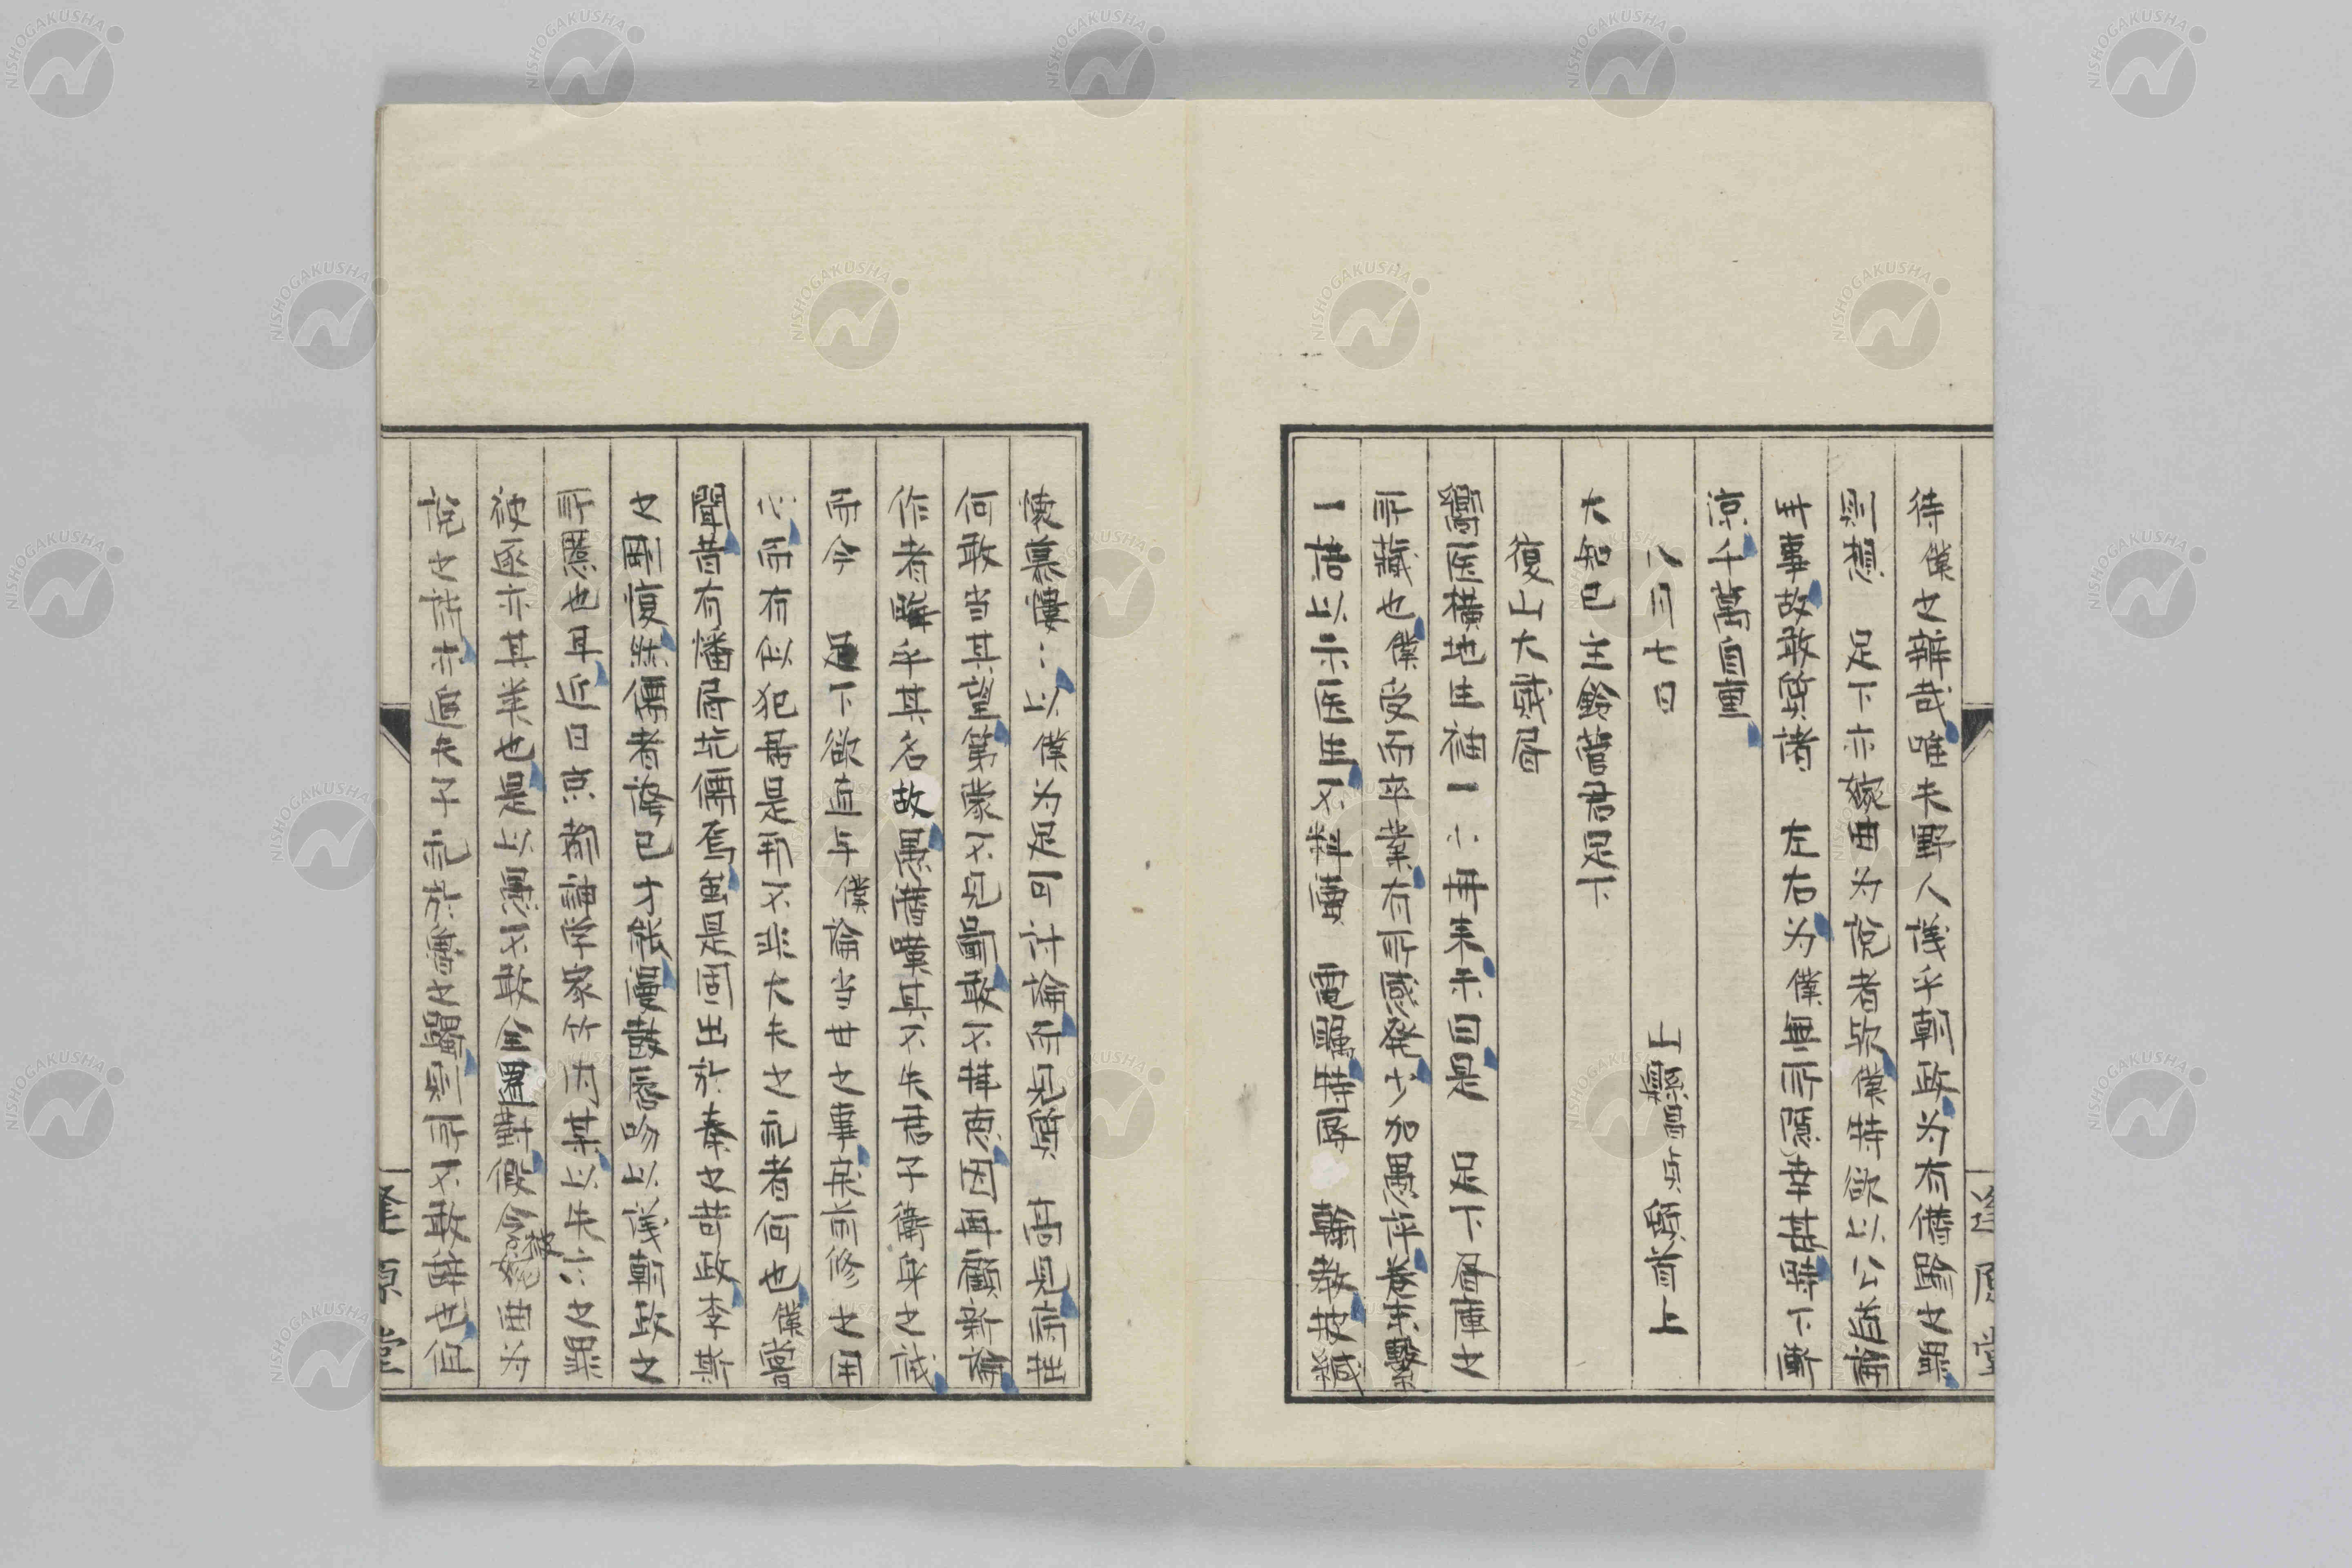 待僕之辨哉唯夫野人議乎朝政为有僭踰之罪
則想 足下亦婉曲为說者欤僕特欲以公道論
此事故敢質諸 左右为僕無所隱幸甚時下漸
涼千萬自重
八月七日 上縣昌貞頓首上
大知己主鈴菅君足下
復山大貳書
鄉医橫地生袖一小冊来示目是 足下書庫之
所藏也僕受而卒業有所感発少加愚评卷末繫
一語以示医生不料賣 電矚特辱 翰教披緘
悽慕慺:以僕为足可討論而見質 高見
何敢当其望第蒙不見鄙敢不拜惠因再顧新論
作者晦乎其名故愚僭嘆其不失君子衛身之誡
而今 足下欲直与僕論当世之事宋前修之用
心而有似犯君是邦不非大夫之礼者何也僕嘗
聞昔有燔书坑儒焉蓋是固出於秦之苛政李斯
之剛愎然儒者誇已才能漫鼓唇吻以議朝政之
所惹也耳近日京都講学家竹内某以失六之罪
被逐亦其業也是以愚不敢全置對假令婉曲为
說之詩亦冝夫子礼於魯之躅則所不敢辞也但
逢原堂
逢原堂
NISHOGAKUSHA